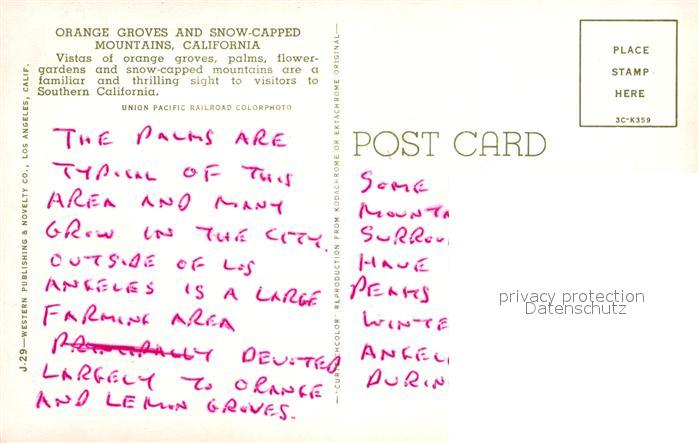 ORANGE GROVES AND SNOW-CAPPED
MOUNTAINS, CALIFORNIA
Vistas of orange groves, palms, flower-
gardens and snow-capped mountains are a
familiar and thrilling sight to visitors to
Southern California.
UNION PACIFIC RAILROAD COLORPHOTO
THE PALMS ARE
TYPICAL OF THIS
AREA AND MANY
GROW IN THE CITY.
OUTSIDE OF LOS
ANGELES IS A LARGE
FARMING AREA
DEVOTED
LARGELY TO ORANGE
AND LEMON GROVES.
J-29—WESTERN PUBLISHING & NOVELTY CO., LOS ANGELES, CALIF.
—"CURTEICHCOLOR" REPRODUCTION FROM KODACHROME OR EKTACHROME ORIGINAL—
POST CARD
PLACE
STAMP
HERE
3C-K359
SOME
MOUNTA
SURROU
HAVE
PEAKS
WINTE
ANGEL
DURIN
privacy protection
Datenschutz